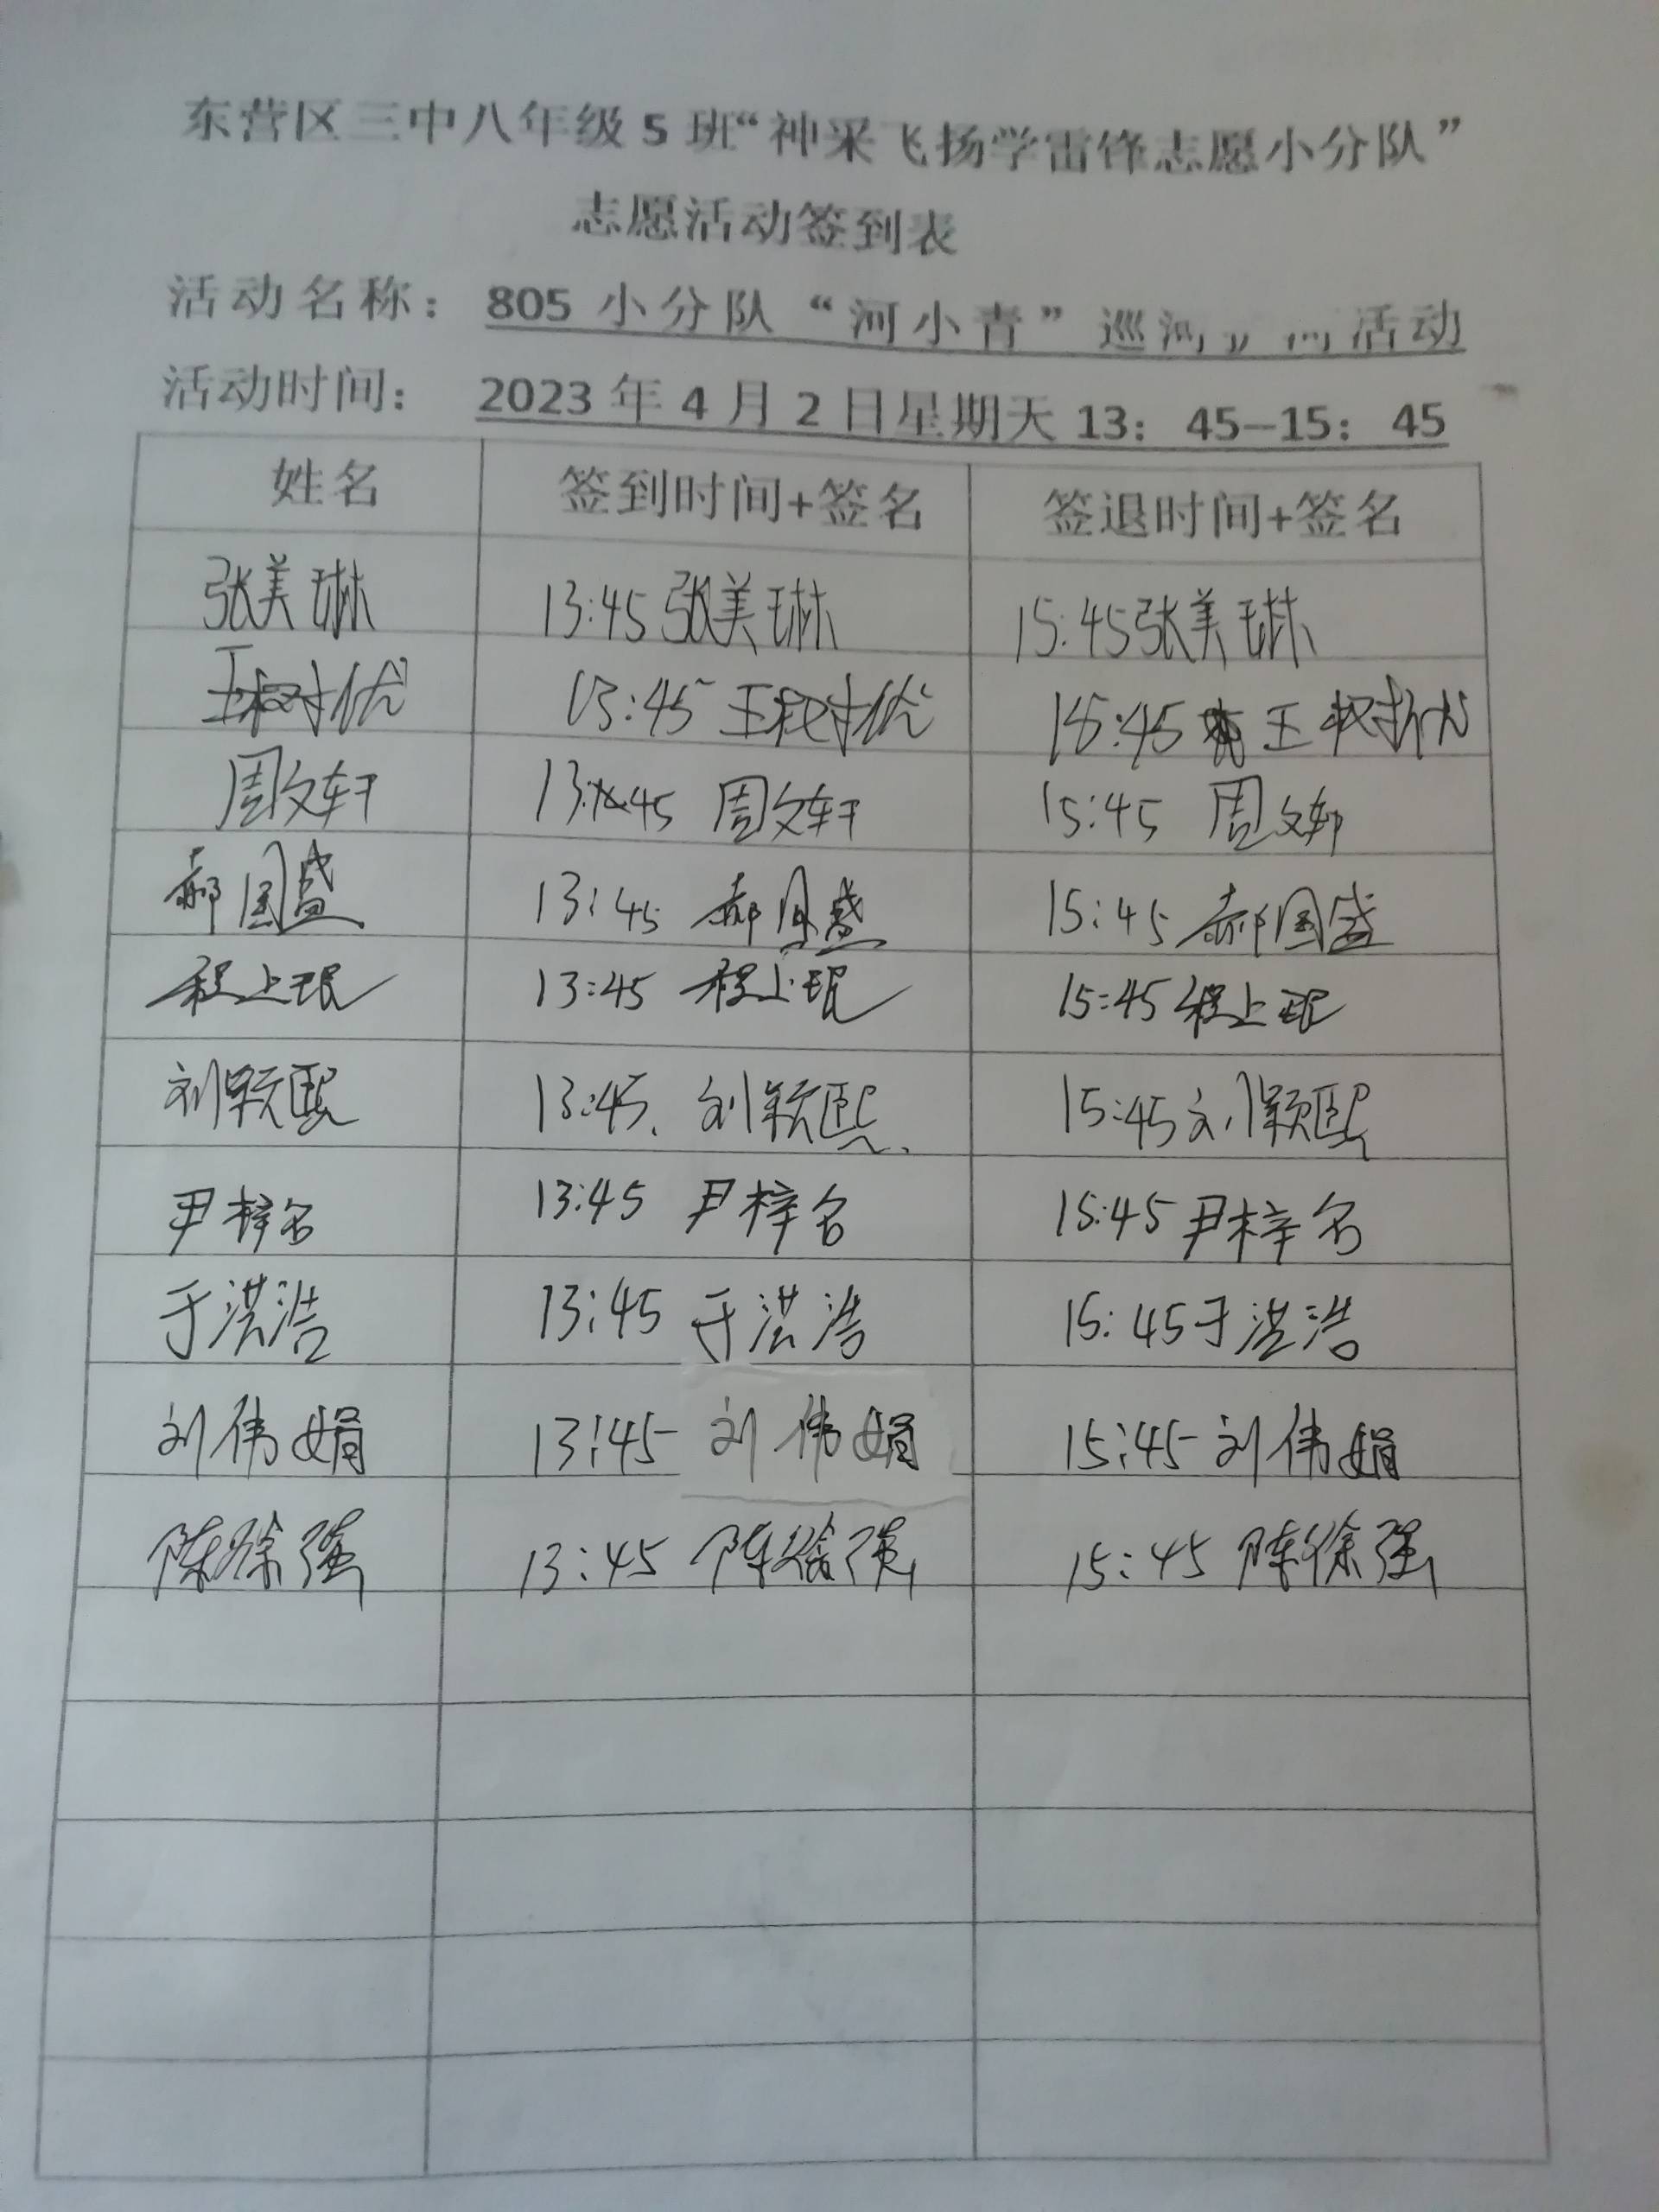 东营区三中八年级5班“神采飞扬学雷锋志愿小分队”
志愿活动签到表
活动名称：805小分队“河小青”巡河 活动
活动时间：2023年4月2日星期天13：45—15：45
姓名 签到时间+签名 签退时间+签名
张美琳 13:45 张美琳 15:45 张美琳
王树优 13:45 王树优 15:45 王树优
周文轩 13:45 周文轩 15:45 周文轩
郝国盛 13:45 郝国盛 15:45 郝国盛
程上珉 13:45 程上珉 15:45 程上珉
刘颖熙 13:45 刘颖熙 15:45 刘颖熙
尹梓名 13:45 尹梓名 15:45 尹梓名
于洪浩 13:45 于洪浩 15:45 于洪浩
刘伟娟 13:45 刘伟娟 15:45 刘伟娟
陈徐强 13:45 陈徐强 15:45 陈徐强